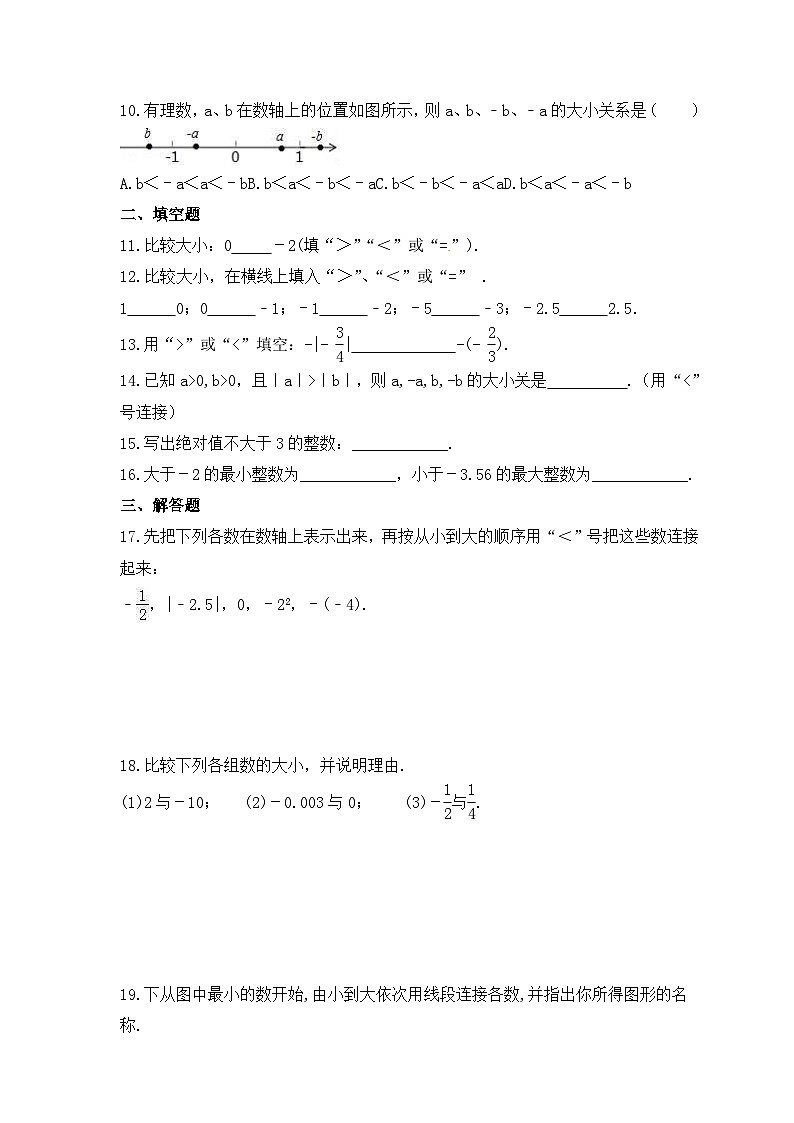 10.有理数,a、b在数轴上的位置如图所示,则a、b、﹣b、﹣a的大小关系是(  )
b -a a -b
-1 0 1
A.b<﹣a<a<﹣bB.b<a<﹣b<﹣aC.b<﹣b<﹣a<aD.b<a<﹣a<﹣b
二、填空题
11.比较大小:0_____-2(填“>”“<”或“=”).
12.比较大小,在横线上填入“>”、“<”或“=” .
1______0;0______﹣1;﹣1______﹣2;﹣5______﹣3;﹣2.5______2.5.
13.用“>”或“<”填空:-|-3/4|_____________-(-2/3).
14.已知a>0,b>0,且|a|>|b|,则a,-a,b,-b的大小关是__________.(用“<”
号连接)
15.写出绝对值不大于3的整数:____________.
16.大于-2的最小整数为____________,小于-3.56的最大整数为____________.
三、解答题
17.先把下列各数在数轴上表示出来,再按从小到大的顺序用“<”号把这些数连接
起来:
﹣1/2,|﹣2.5|,0,﹣2²,﹣(﹣4).
18.比较下列各组数的大小,并说明理由.
(1)2与-10; (2)-0.003与0; (3)-1/2与1/4.
19.下从图中最小的数开始,由小到大依次用线段连接各数,并指出你所得图形的名
称.